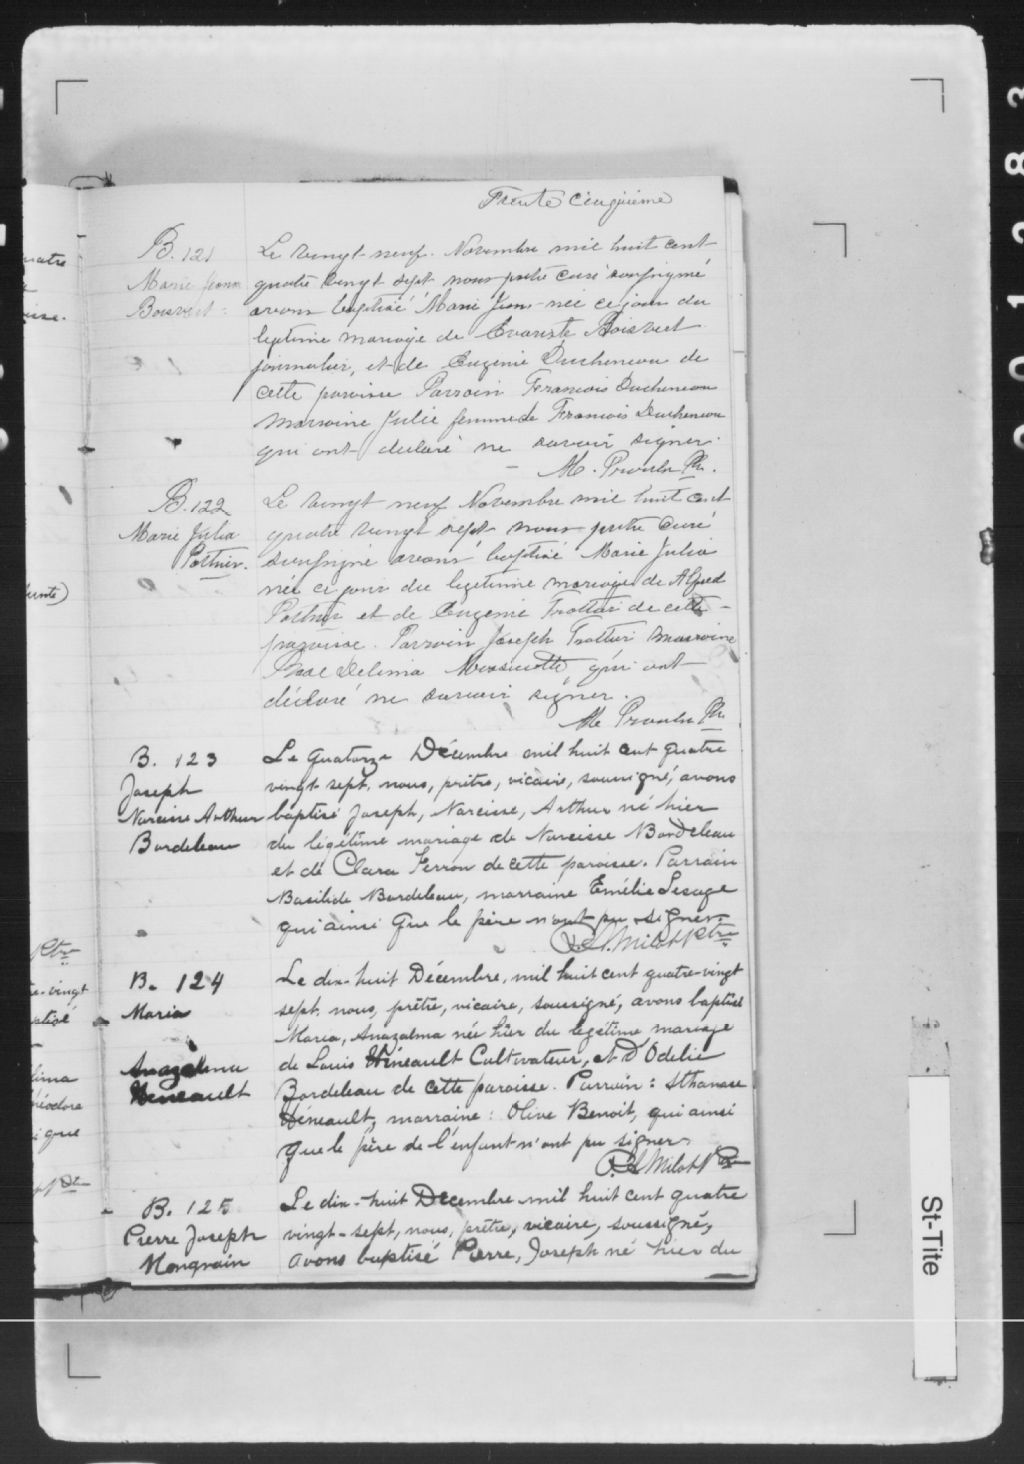 Trente cinquième
B. 121
Marie Jeanne
Boisvert
Le vingt-neuf Novembre mil huit cent
quatre vingt sept nous prêtre curé soussigné
avons baptisé Marie Jeanne née ce jour du
legitime mariage de Evariste Boisvert
journalier, et de Eugenie Ducheneau de
cette paroisse Parrain François Ducheneau
Marraine Julie femme de François Ducheneau
qui ont declaré ne savoir signer.
M. Proulx Ptr.
B. 122
Marie Julia
Pothier.
Le vingt neuf Novembre mil huit cent
quatre vingt sept nous prêtre curé
soussigné avons baptisé Marie Julia
née ce jour du legitime mariage de Alfred
Pothier et de Eugenie Trottier de cette
paroisse. Parrain Joseph Trottier marraine
Rose Delima qui ont
déclaré ne savoir signer.
M Proulx Ptr.
B. 123
Joseph
Narcisse Arthur
Bordeleau
Le quatorze Décembre mil huit cent quatre
vingt sept, nous, prêtre, vicaire, soussigné, avons
baptisé Joseph, Narcisse, Arthur né hier
du légitime mariage de Narcisse Bordeleau
et de Clara Ferron de cette paroisse. Parrain
Basilide Bordeleau, marraine Emélie Lesage
qui ainsi que le père n'ont pu signer
P. L. Milot Ptre
B. 124
Maria
Anazalma
Héneault
Le dix-huit Décembre, mil huit cent quatre-vingt
sept, nous, prêtre, vicaire, soussigné, avons baptisé
Maria, Anazalma née hier du légitime mariage
de Louis Héneault Cultivateur, et d'Odelie
Bordeleau de cette paroisse. Parrain: Athanase
Héneault, marraine: Olive Benoit, qui ainsi
que le père de l'enfant n'ont pu signer.
P. L. Milot Ptre
B. 125
Pierre Joseph
Mongrain
Le dix-huit Décembre mil huit cent quatre
vingt-sept, nous, prêtre, vicaire, soussigné,
avons baptisé Pierre, Joseph né hier du
St-Tite